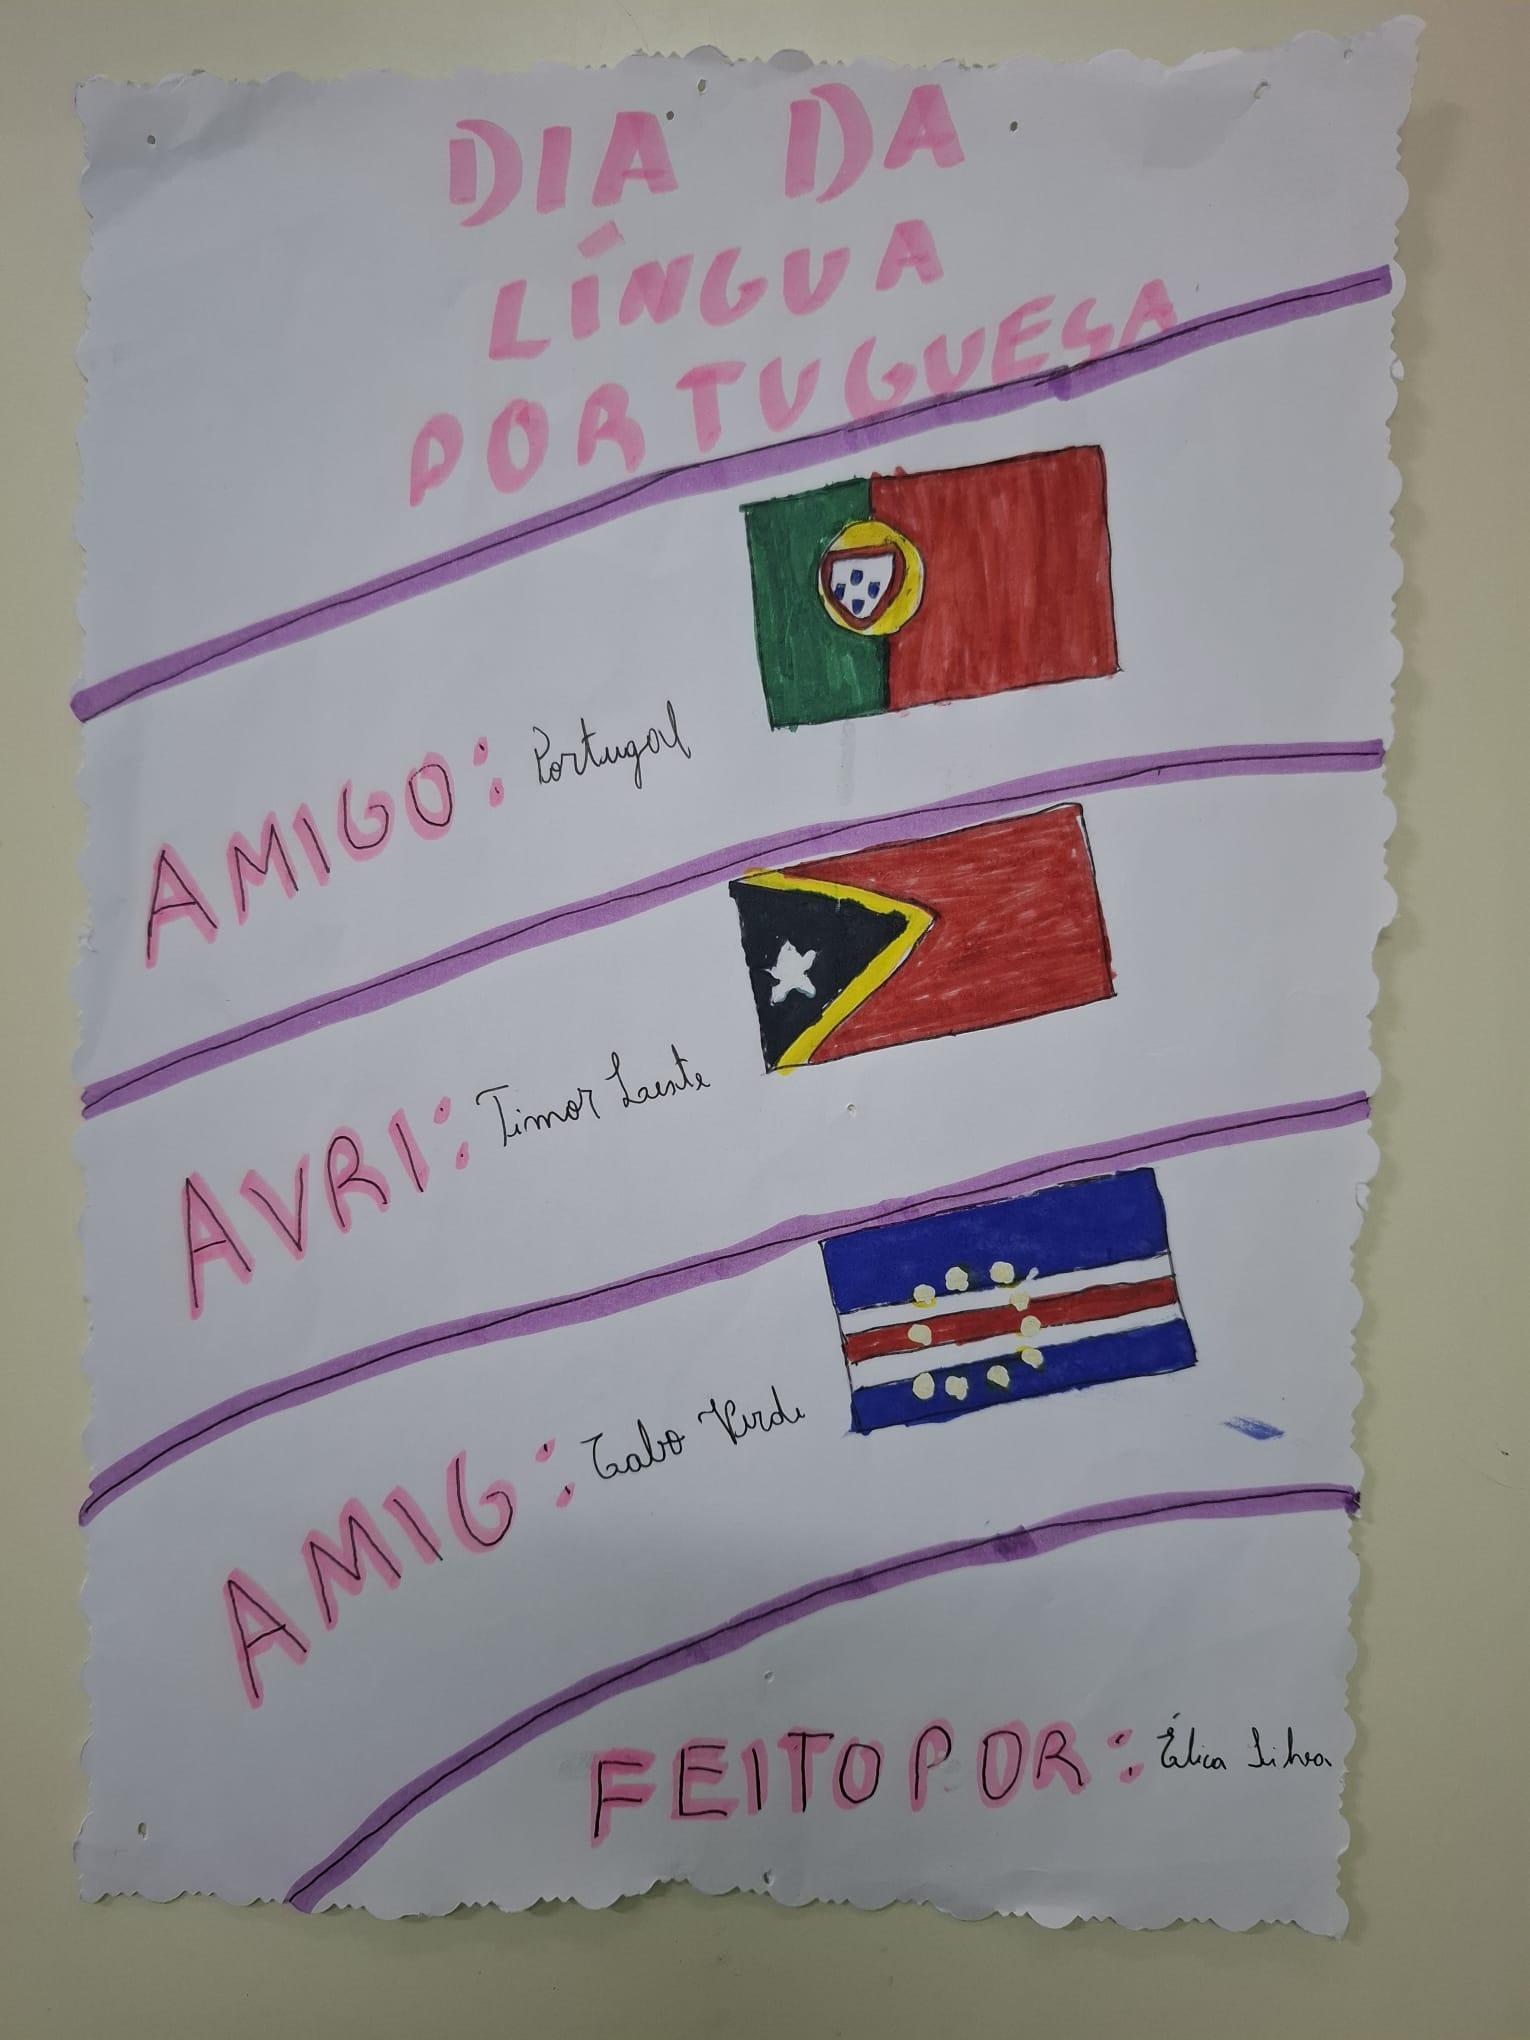 DIA DA
LÍNGUA
PORTUGUESA
AMIGO: Portugal
AVRI: Timor Leste
AMIG: Cabo Verde
FEITO POR: Élica Silva